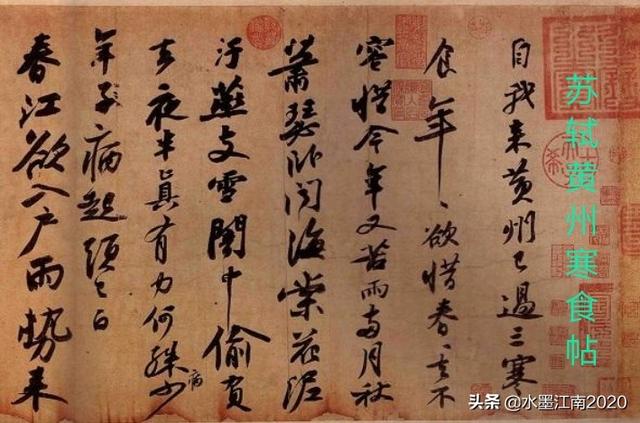 苏轼黄州寒食帖
自我来黄州已過三寒
食年〻欲惜春〻去不
容惜今年又苦雨兩月秋
蕭瑟卧聞海棠花泥
汙燕支雪闇中偷負
去夜半真有力何殊少
病
年子病起頭已白
春江欲入戶雨勢来
头条 @水墨江南2020